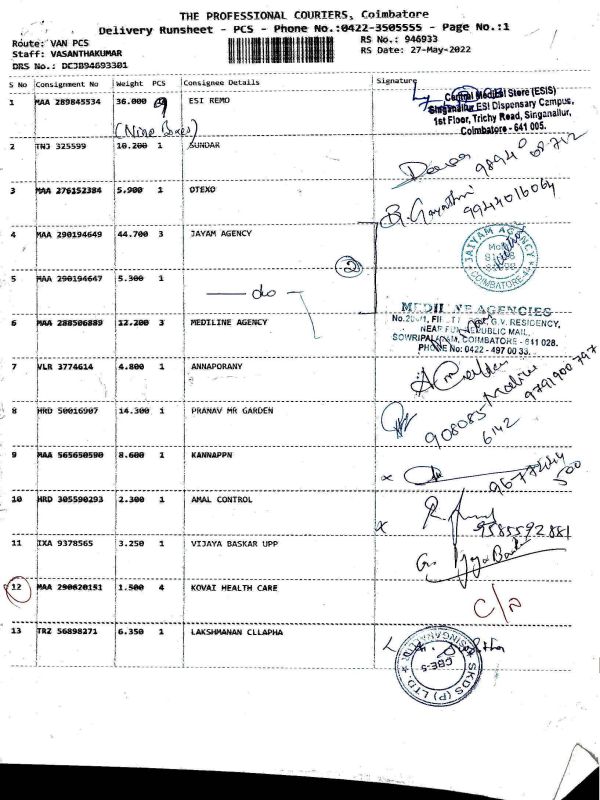 THE PROFESSIONAL COURIERS, Coimbatore
Delivery Runsheet - PCS - Phone No.:0422-3505555 - Page No.:1
Route: VAN PCS
RS No.: 946933
Staff: VASANTHAKUMAR
RS Date: 27-May-2022
DRS No.: DCJB94693301
S No Consignment No Weight PCS Consignee Details Signature
1 MAA 289845534 36.000 9 ESI REMO
(Nine Boxes)
Central Medical Store (ESIS)
Singanallur ESI Dispensary Campus,
1st Floor, Trichy Road, Singanallur,
Coimbatore - 641 005.
2 TNJ 325599 10.200 1 SUNDAR
3 MAA 276152384 5.900 1 OTEXO
9944016064
4 MAA 290194649 44.700 3 JAYAM AGENCY
JAIYAM AGENCY
COIMBATORE-4
2
5 MAA 290194647 5.300 1
— do —
6 MAA 288506889 12.200 3 MEDILINE AGENCY
MEDILINE AGENCIES
G.V. RESIDENCY,
SOWRIPALAYAM, COIMBATORE - 641 028.
PHONE No: 0422 - 497 00 33.
7 VLR 3774614 4.800 1 ANNAPORANY
9791900797
8 HRD 50016907 14.300 1 PRANAV MR GARDEN
908085
6142
9 MAA 565650590 8.600 1 KANNAPPN
x
500
10 HRD 305590293 2.300 1 AMAL CONTROL
x
9585592881
11 IXA 9378565 3.250 1 VIJAYA BASKAR UPP
12 MAA 290620151 1.500 4 KOVAI HEALTH CARE
13 TRZ 56898271 6.350 1 LAKSHMANAN CLLAPHA
SKDS (P) LTD.
CBE-5